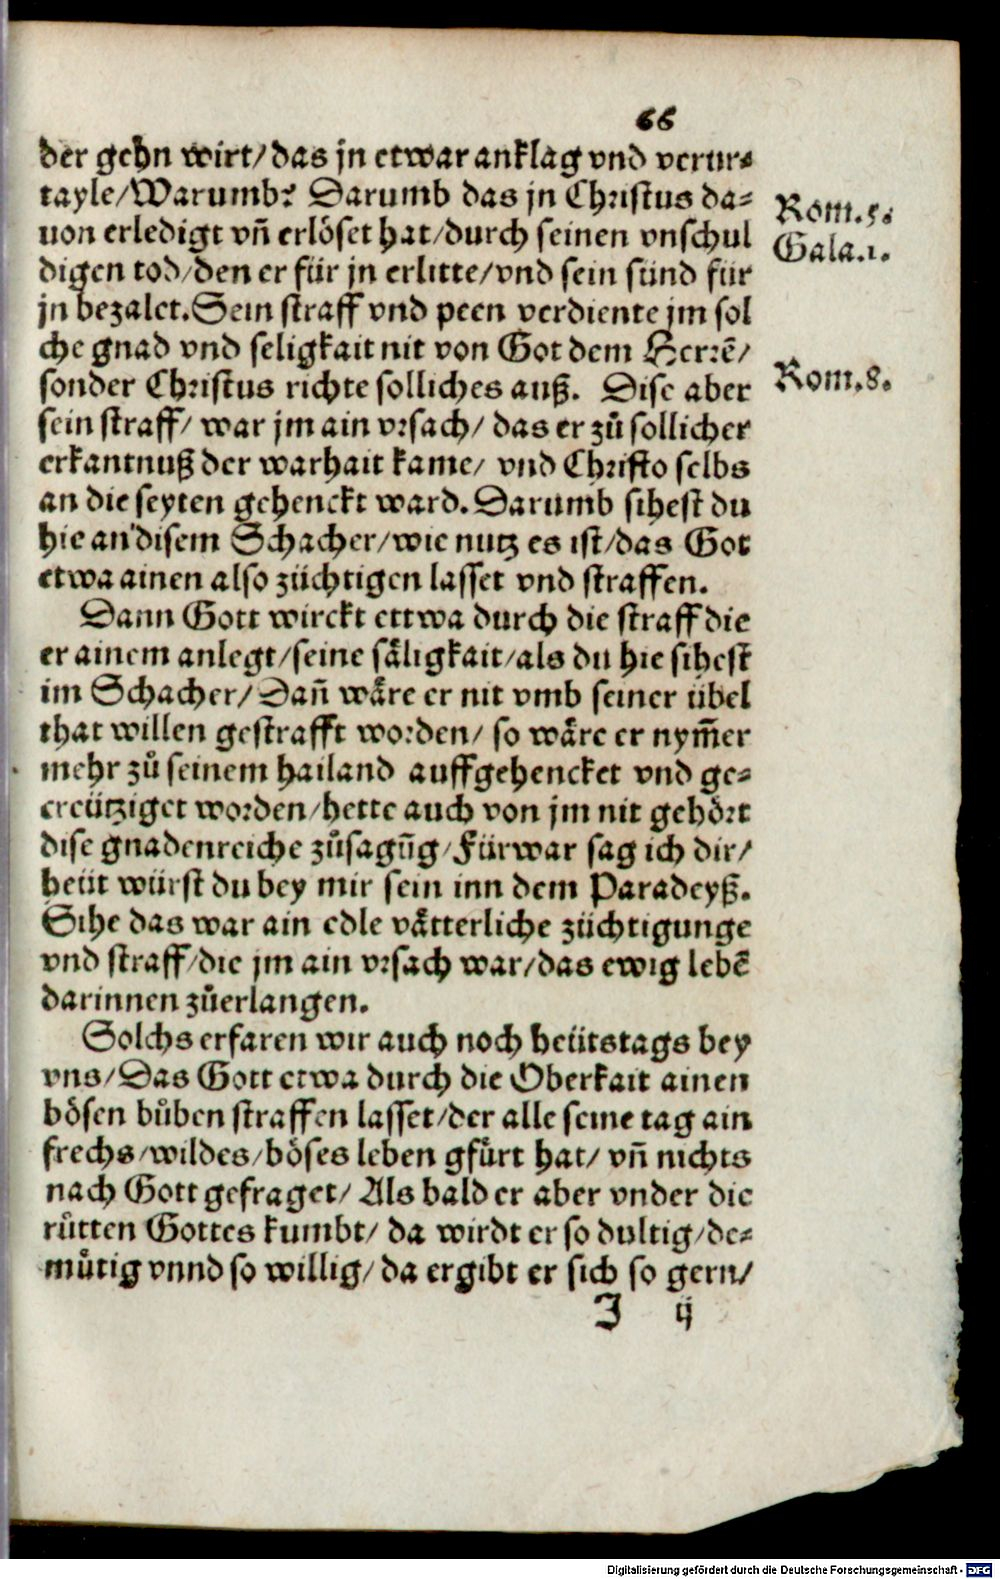 66
der gehn wirt/das jn etwar anklag vnd verur⸗
tayle/Warumb? Darumb das jn Christus da⸗
uon erledigt vñ erlöset hat/durch seinen vnschul
digen tod/den er für jn erlitte/vnd sein sünd für
jn bezalet. Sein straff vnd peen verdiente jm sol
che gnad vnd seligkait nit von Got dem Herrē/
sonder Christus richte solliches auß. Dise aber
sein straff/ war jm ain vrsach/ das er zů sollicher
erkantnuß der warhait kame/ vnd Christo selbs
an die seyten gehenckt ward. Darumb sihest du
hie an disem Schacher/wie nutz es ist/das Got
etwa ainen also züchtigen lasset vnd straffen.
Dann Gott wirckt ettwa durch die straff die
er ainem anlegt/seine såligkait/als du hie sihest
im Schacher/Dañ wåre er nit vmb seiner übel
that willen gestrafft worden/ so wåre er nym̄er
mehr zů seinem hailand auffgehencket vnd ge⸗
creütziget worden/hette auch von jm nit gehört
dise gnadenreiche zůsagūg/Fürwar sag ich dir/
heüt würst du bey mir sein inn dem Paradeyß.
Sihe das war ain edle våtterliche züchtigunge
vnd straff/die jm ain vrsach war/das ewig lebē
darinnen zůerlangen.
Solchs erfaren wir auch noch heütstags bey
vns/Das Gott etwa durch die Oberkait ainen
bösen bůben straffen lasset/der alle seine tag ain
frechs/wildes/böses leben gfürt hat/ vñ nichts
nach Gott gefraget/ Als bald er aber vnder die
růtten Gottes kumbt/ da wirdt er so dultig/de⸗
můtig vnnd so willig/ da ergibt er sich so gern/
J ij
Rom.5.
Gala.1.
Rom.8.
Digitalisierung gefördert durch die Deutsche Forschungsgemeinschaft - DFG